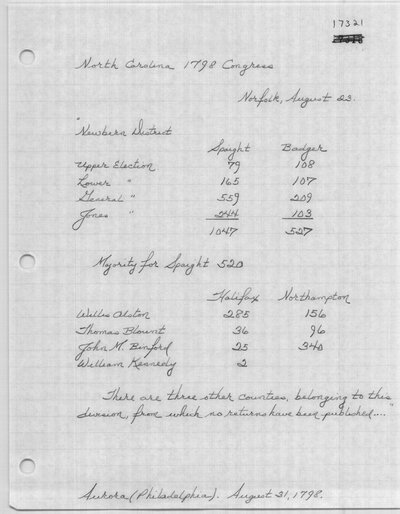 17321
North Carolina 1798 Congress
Norfolk, August 23.
"Newbern District
Spaight Badger
Upper Election 79 108
Lower " 165 107
General " 559 209
Jones " 244 103
1047 527
Majority for Spaight 520
Halifax Northampton
Willis Alston 285 156
Thomas Blount 36 96
John M. Binford 25 340
William Kennedy 2
There are three other counties, belonging to this
division, from which no returns have been published...."
Aurora (Philadelphia). August 31, 1798.